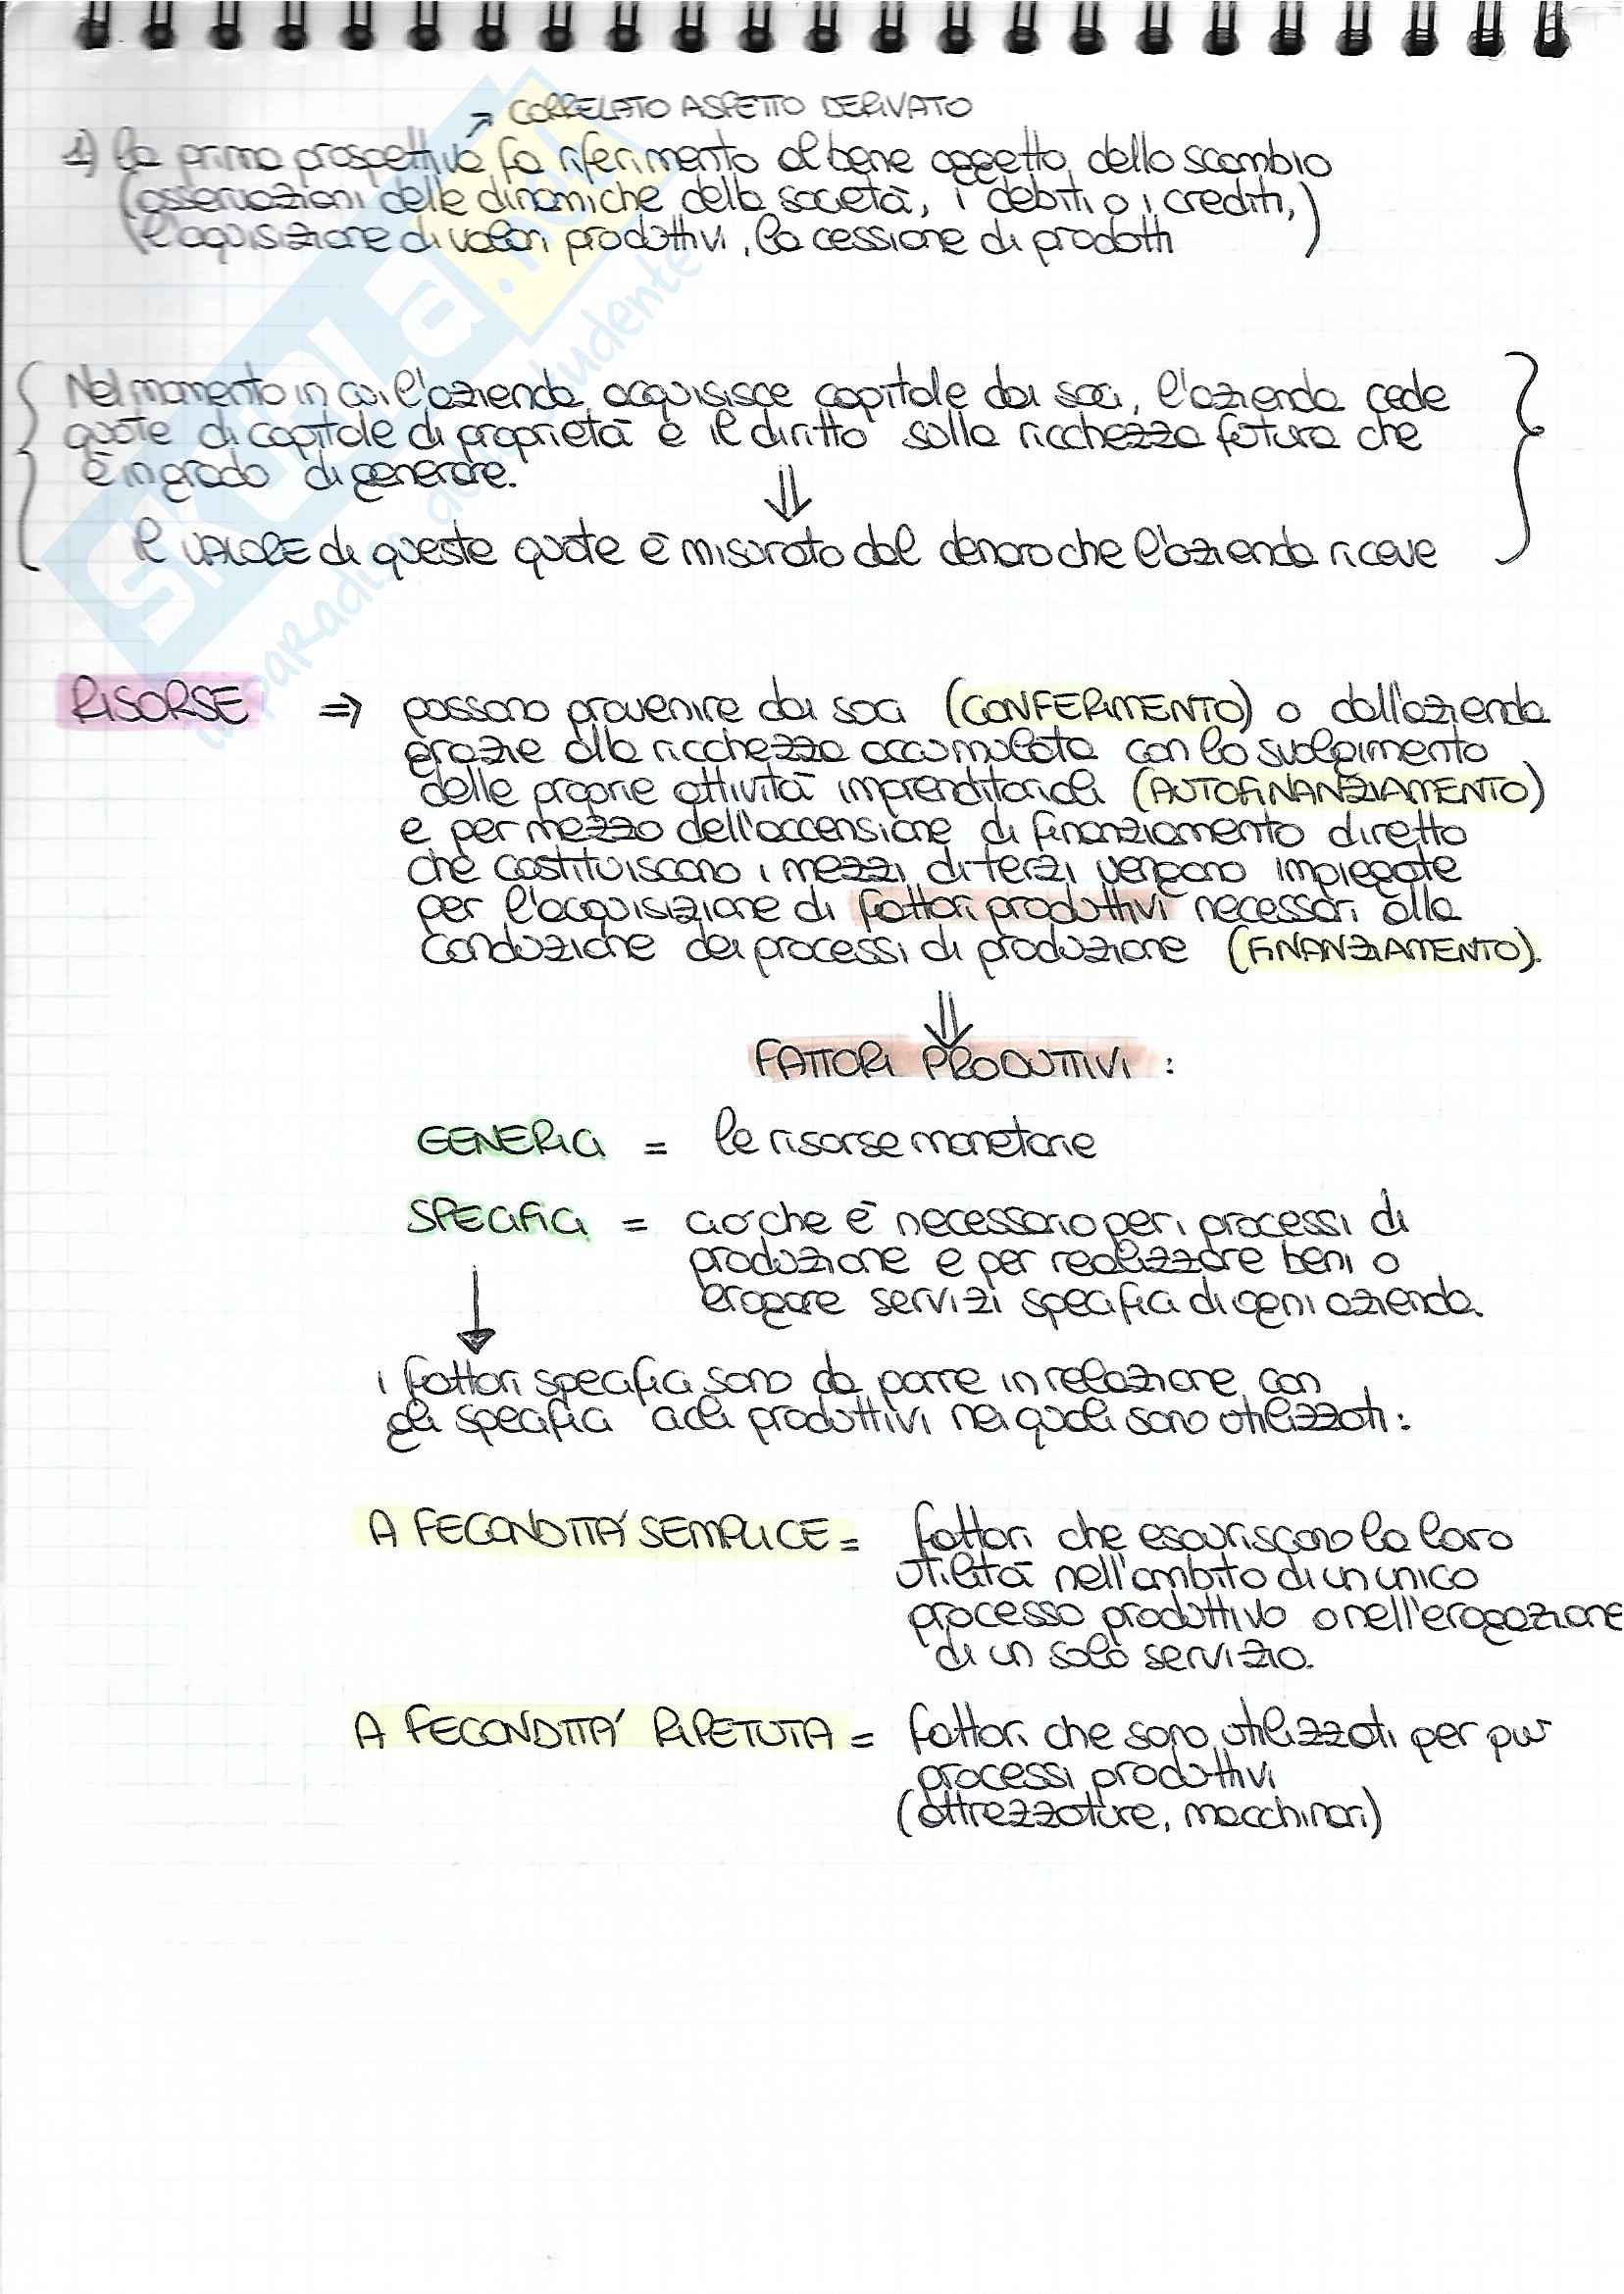 ↗ CORRELATO ASPETTO DERIVATO
1) la prima prospettiva fa riferimento al bene oggetto dello scambio
(osservazioni delle dinamiche della società, i debiti o i crediti,
l'aquisizione di valori produttivi, la cessione di prodotti)
Nel momento in cui l'azienda acquisisce capitale dai soci, l'azienda cede
quote di capitale di proprietà e il diritto sulla ricchezza futura che
è in grado di generare.
⇓
il VALORE di queste quote è misurato dal denaro che l'azienda riceve
RISORSE ⇒ possono provenire dai soci (CONFERIMENTO) o dall'azienda
grazie alla ricchezza accumulata con lo svolgimento
delle proprie attività imprenditoriali (AUTOFINANZIAMENTO)
e per mezzo dell'accensione di finanziamento diretto
che costituiscono i mezzi di terzi vengono impiegate
per l'acquisizione di fattori produttivi necessari alla
conduzione dei processi di produzione (FINANZIAMENTO).
⇓
FATTORI PRODUTTIVI :
GENERICI = le risorse monetarie
SPECIFICI = ciò che è necessario per i processi di
produzione e per realizzare beni o
erogare servizi specifici di ogni azienda.
↓
i fattori specifici sono da porre in relazione con
gli specifici cicli produttivi nei quali sono utilizzati:
A FECONDITA' SEMPLICE = fattori che esauriscono la loro
utilità nell'ambito di un unico
processo produttivo o nell'erogazione
di un solo servizio.
A FECONDITA' RIPETUTA = fattori che sono utilizzati per più
processi produttivi
(attrezzature, macchinari)
skuola.net
il paradiso dello studente